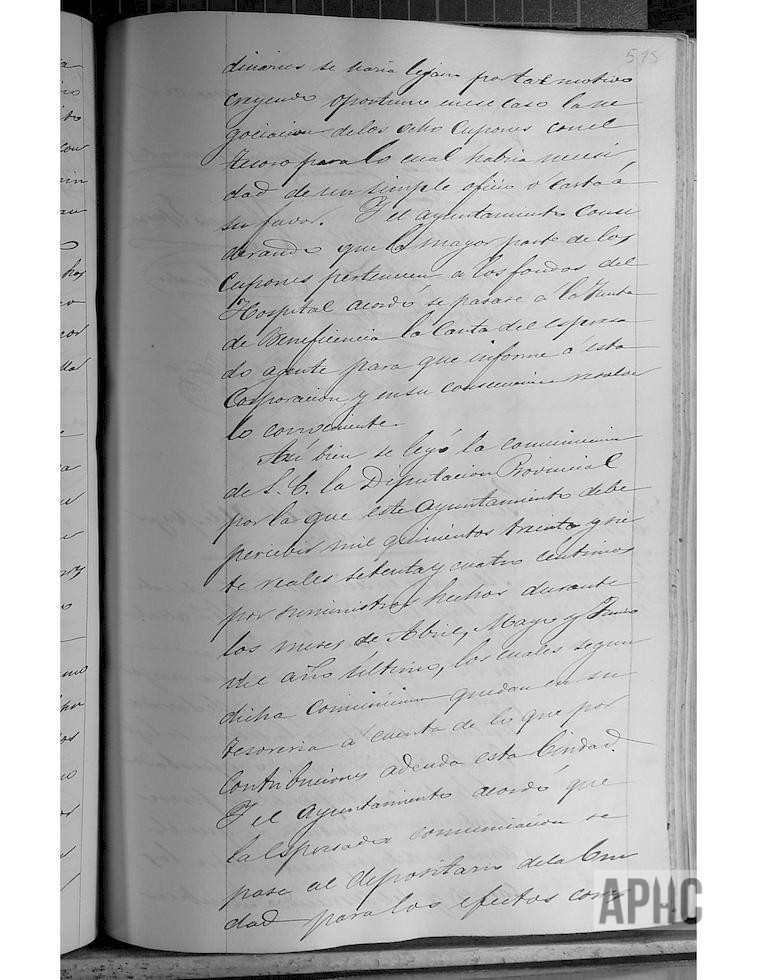 595
dinarios se haria lejano por tal motivo
creyendo oportuno en ese caso la ne
gociacion de los ocho Cupones con el
tesoro para lo cual habria necesi
dad de un simple oficio ó carta á
su favor. Y el ayuntamiento consi
derando que la mayor parte de los
Cupones pertenecen a los fondos del
Hospital acordó se pasase á la Junta
de Beneficencia la Carta del espresa
do agente para que informe á esta
Corporacion y en su consecuencia resolver
lo conveniente.
Asi bien se leyó la comunicacion
de S. E. la Diputacion Provincial
por la que este ayuntamiento debe
percibir mil quinientos treinta y sie
te reales setenta y cuatro centimos
por suministros hechos durante
los meses de Abril, Mayo y Junio
del año último, los cuales segun
dicha comunicacion quedan en su
tesoreria á cuenta de lo que por
Contribuciones adeuda esta Ciudad.
Y el Ayuntamiento acordó que
la espresada comunicacion se
pase al depositario de la Ciu
dad para los efectos cons
APHC